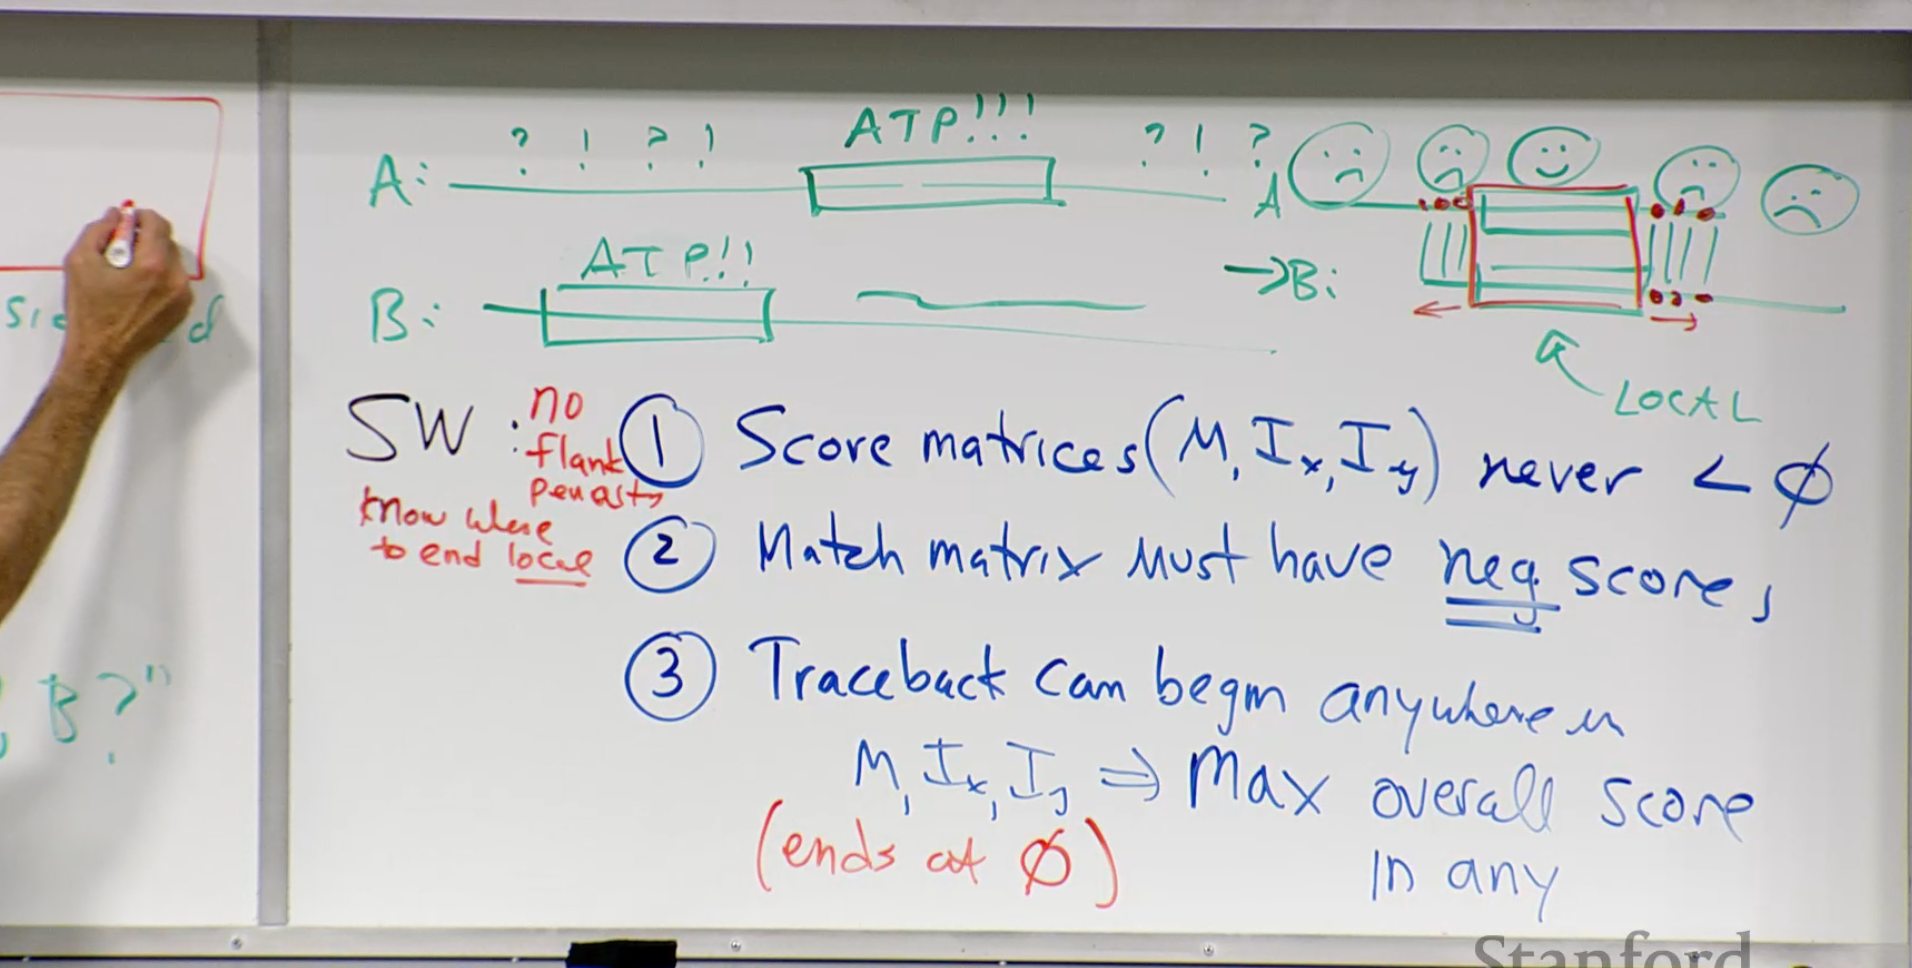 ? ! ? ! ATP!!! ? ! ?
A:
A
ATP!!
B:
→B:
LOCAL
SW :
no
flank
penalty
know where
to end local
① Score matrices (M, Ix, Iy) never < ∅
② Match matrix must have neg scores
③ Traceback can begin anywhere in
M, Ix, Iy ⇒ Max overall score
in any
(ends at ∅)
B?"
Stanford